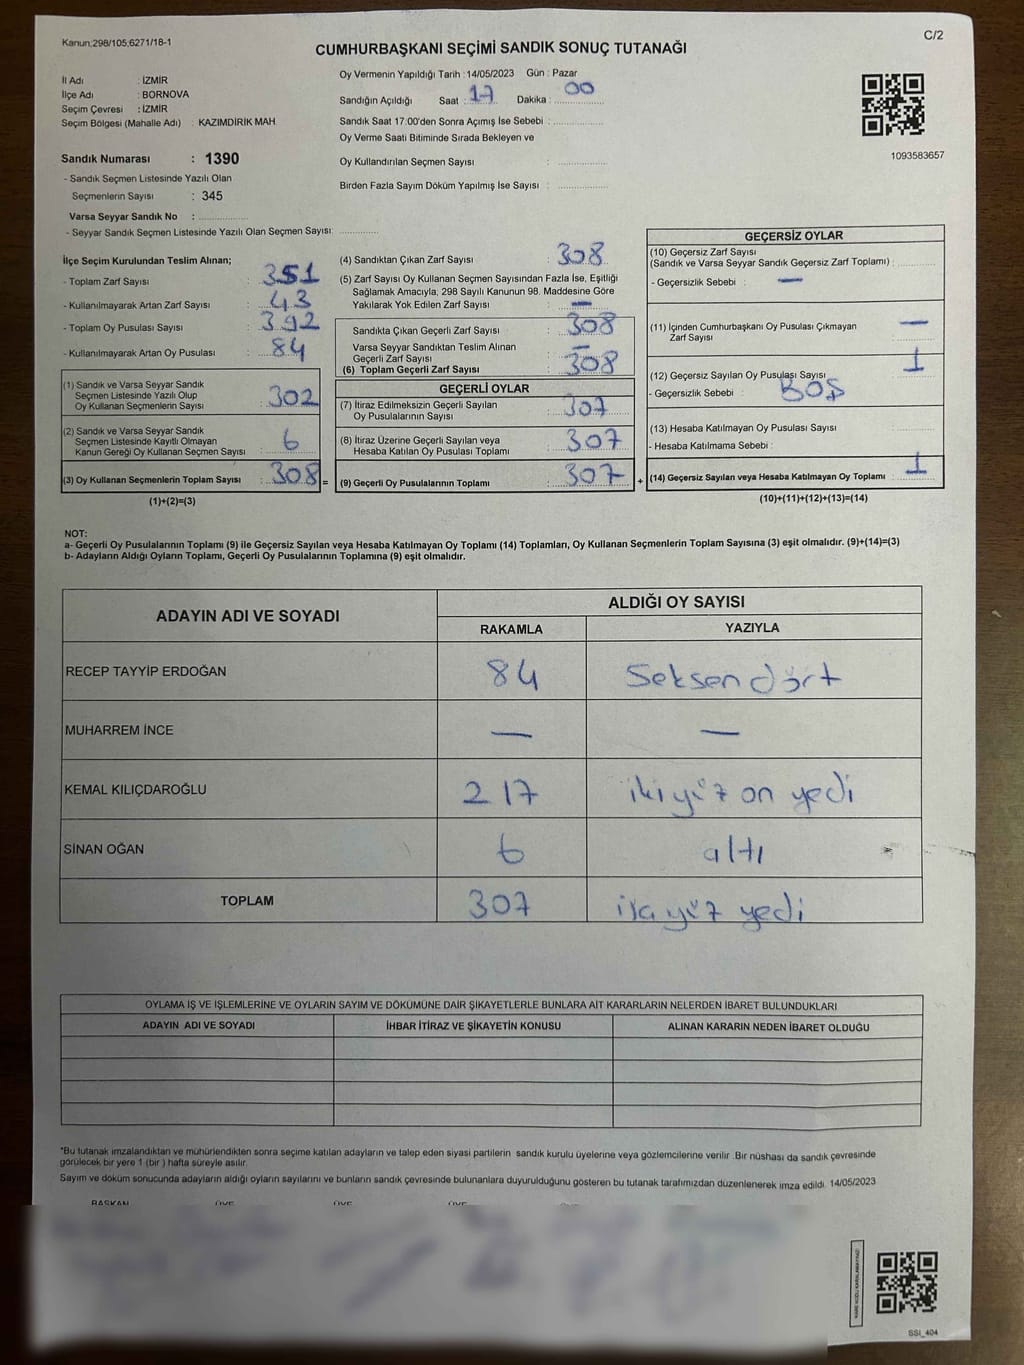 Kanun;298/105,6271/18-1
C/2
CUMHURBAŞKANI SEÇİMİ SANDIK SONUÇ TUTANAĞI
İl Adı : İZMİR
İlçe Adı : BORNOVA
Seçim Çevresi : İZMİR
Seçim Bölgesi (Mahalle Adı) : KAZIMDİRİK MAH.
Sandık Numarası : 1390
- Sandık Seçmen Listesinde Yazılı Olan
Seçmenlerin Sayısı : 345
Varsa Seyyar Sandık No : ............
- Seyyar Sandık Seçmen Listesinde Yazılı Olan Seçmen Sayısı: ............
Oy Vermenin Yapıldığı Tarih : 14/05/2023 Gün : Pazar
Sandığın Açıldığı Saat : 17 Dakika : 00
Sandık Saat 17:00'den Sonra Açımış İse Sebebi : ............
Oy Verme Saati Bitiminde Sırada Bekleyen ve
Oy Kullandırılan Seçmen Sayısı : ............
Birden Fazla Sayım Döküm Yapılmış İse Sayısı : ............
1093583657
İlçe Seçim Kurulundan Teslim Alınan;
- Toplam Zarf Sayısı : 351
- Kullanılmayarak Artan Zarf Sayısı : 43
- Toplam Oy Pusulası Sayısı : 392
- Kullanılmayarak Artan Oy Pusulası : 84
(1) Sandık ve Varsa Seyyar Sandık
Seçmen Listesinde Yazılı Olup
Oy Kullanan Seçmenlerin Sayısı : 302
(2) Sandık ve Varsa Seyyar Sandık
Seçmen Listesinde Kayıtlı Olmayan
Kanun Gereği Oy Kullanan Seçmen Sayısı : 6
(3) Oy Kullanan Seçmenlerin Toplam Sayısı : 308 =
(1)+(2)=(3)
(4) Sandıktan Çıkan Zarf Sayısı : 308
(5) Zarf Sayısı Oy Kullanan Seçmen Sayısından Fazla İse, Eşitliği
Sağlamak Amacıyla, 298 Sayılı Kanunun 98. Maddesine Göre
Yakılarak Yok Edilen Zarf Sayısı : —
Sandıkta Çıkan Geçerli Zarf Sayısı : 308
Varsa Seyyar Sandıktan Teslim Alınan
Geçerli Zarf Sayısı : —
(6) Toplam Geçerli Zarf Sayısı : 308
GEÇERLİ OYLAR
(7) İtiraz Edilmeksizin Geçerli Sayılan
Oy Pusulalarının Sayısı : 307
(8) İtiraz Üzerine Geçerli Sayılan veya
Hesaba Katılan Oy Pusulası Toplamı : 307
(9) Geçerli Oy Pusulalarının Toplamı : 307 +
GEÇERSİZ OYLAR
(10) Geçersiz Zarf Sayısı
(Sandık ve Varsa Seyyar Sandık Geçersiz Zarf Toplamı) : ............
- Geçersizlik Sebebi : —
(11) İçinden Cumhurbaşkanı Oy Pusulası Çıkmayan
Zarf Sayısı : —
(12) Geçersiz Sayılan Oy Pusulası Sayısı : 1
- Geçersizlik Sebebi : BOŞ
(13) Hesaba Katılmayan Oy Pusulası Sayısı : ............
- Hesaba Katılmama Sebebi :
(14) Geçersiz Sayılan veya Hesaba Katılmayan Oy Toplamı : 1
(10)+(11)+(12)+(13)=(14)
NOT:
a- Geçerli Oy Pusulalarının Toplamı (9) ile Geçersiz Sayılan veya Hesaba Katılmayan Oy Toplamı (14) Toplamları, Oy Kullanan Seçmenlerin Toplam Sayısına (3) eşit olmalıdır. (9)+(14)=(3)
b- Adayların Aldığı Oyların Toplamı, Geçerli Oy Pusulalarının Toplamına (9) eşit olmalıdır.
ADAYIN ADI VE SOYADI
ALDIĞI OY SAYISI
RAKAMLA YAZIYLA
RECEP TAYYİP ERDOĞAN 84 Seksen dört
MUHARREM İNCE — —
KEMAL KILIÇDAROĞLU 217 iki yüz on yedi
SİNAN OĞAN 6 altı
TOPLAM 307 yüz yedi
OYLAMA İŞ VE İŞLEMLERİNE VE OYLARIN SAYIM VE DÖKÜMÜNE DAİR ŞİKAYETLERLE BUNLARA AİT KARARLARIN NELERDEN İBARET BULUNDUKLARI
ADAYIN ADI VE SOYADI İHBAR İTİRAZ VE ŞİKAYETİN KONUSU ALINAN KARARIN NEDEN İBARET OLDUĞU
*Bu tutanak imzalandıktan ve mühürlendikten sonra seçime katılan adayların ve talep eden siyasi partilerin sandık kurulu üyelerine veya gözlemcilerine verilir .Bir nüshası da sandık çevresinde
görülecek bir yere 1 (bir ) hafta süreyle asılır.
Sayım ve döküm sonucunda adayların aldığı oyların sayılarını ve bunların sandık çevresinde bulunanlara duyurulduğunu gösteren bu tutanak tarafımızdan düzenlenerek imza edildi. 14/05/2023
BAŞKAN ÜYE ÜYE ÜYE
SSI_404